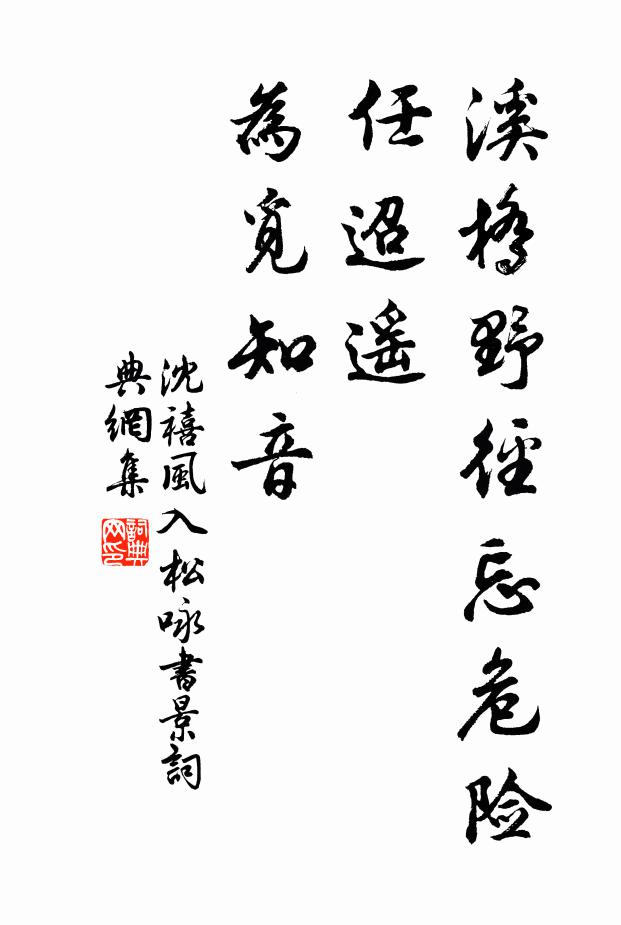 溪橋野徑忘危險
任迢遥
為覓知音
沈禧風入松咏書景詞
典網集
詞典
网印